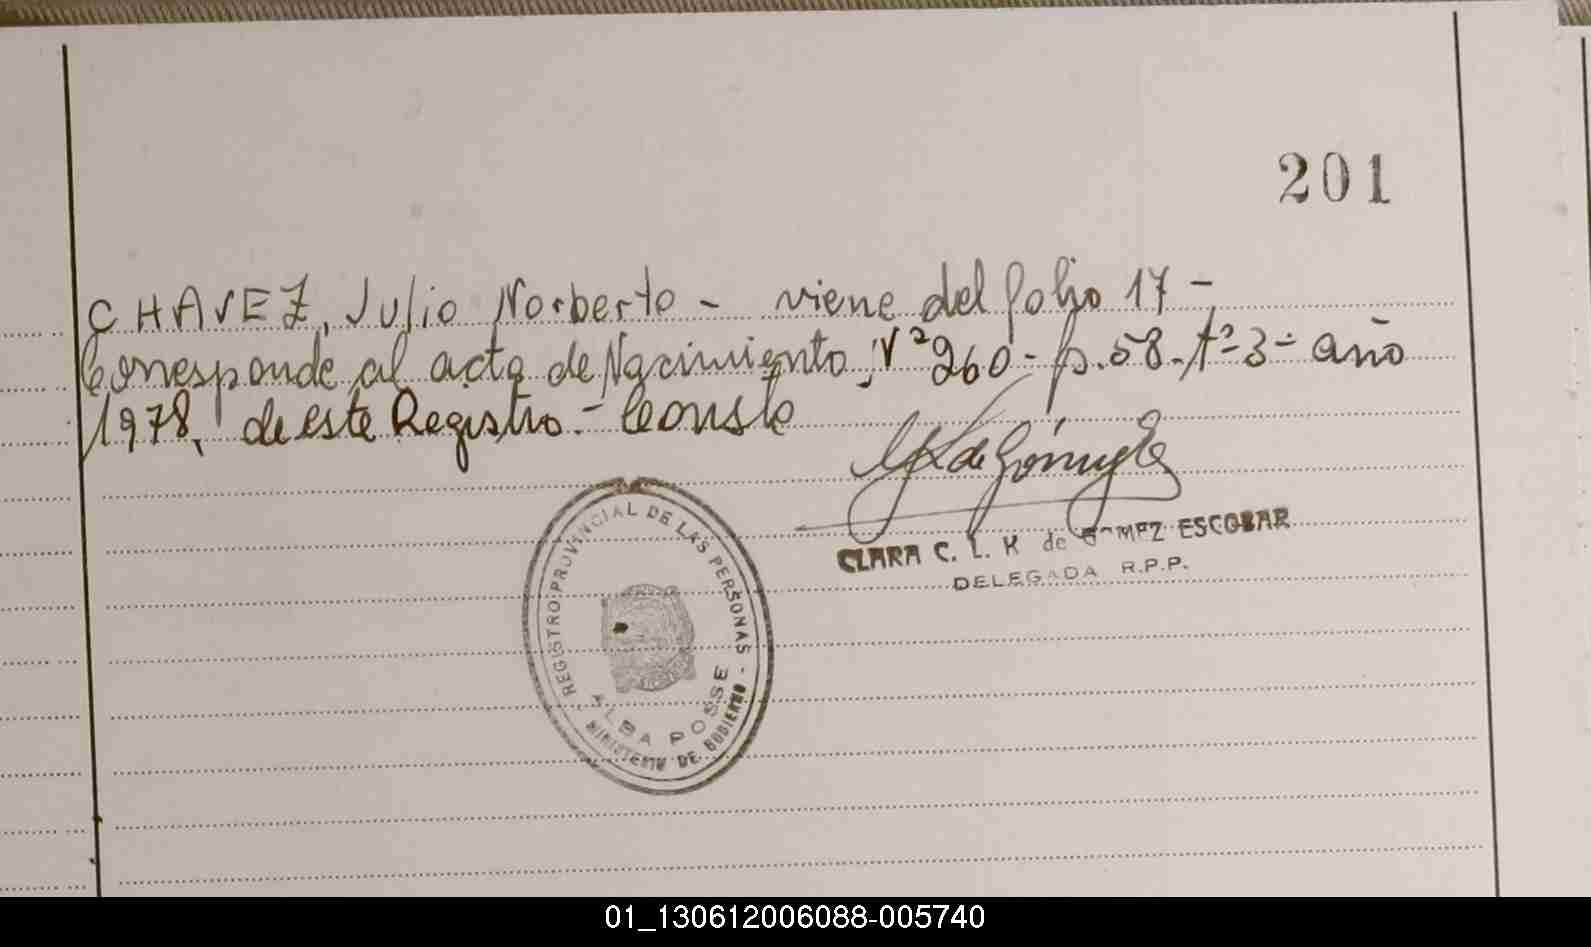 201
CHAVEZ, Julio Norberto - viene del folio 17 -
Corresponde al acta de Nacimiento, Nº 260 - f. 58 - tº 3 - año
1978, de este Registro. - Conste
CLARA C. L. K de GOMEZ ESCOBAR
DELEGADA R.P.P.
REGISTRO PROVINCIAL DE LAS PERSONAS -
ALBA POSSE
MINISTERIO DE GOBIERNO -
01_130612006088-005740